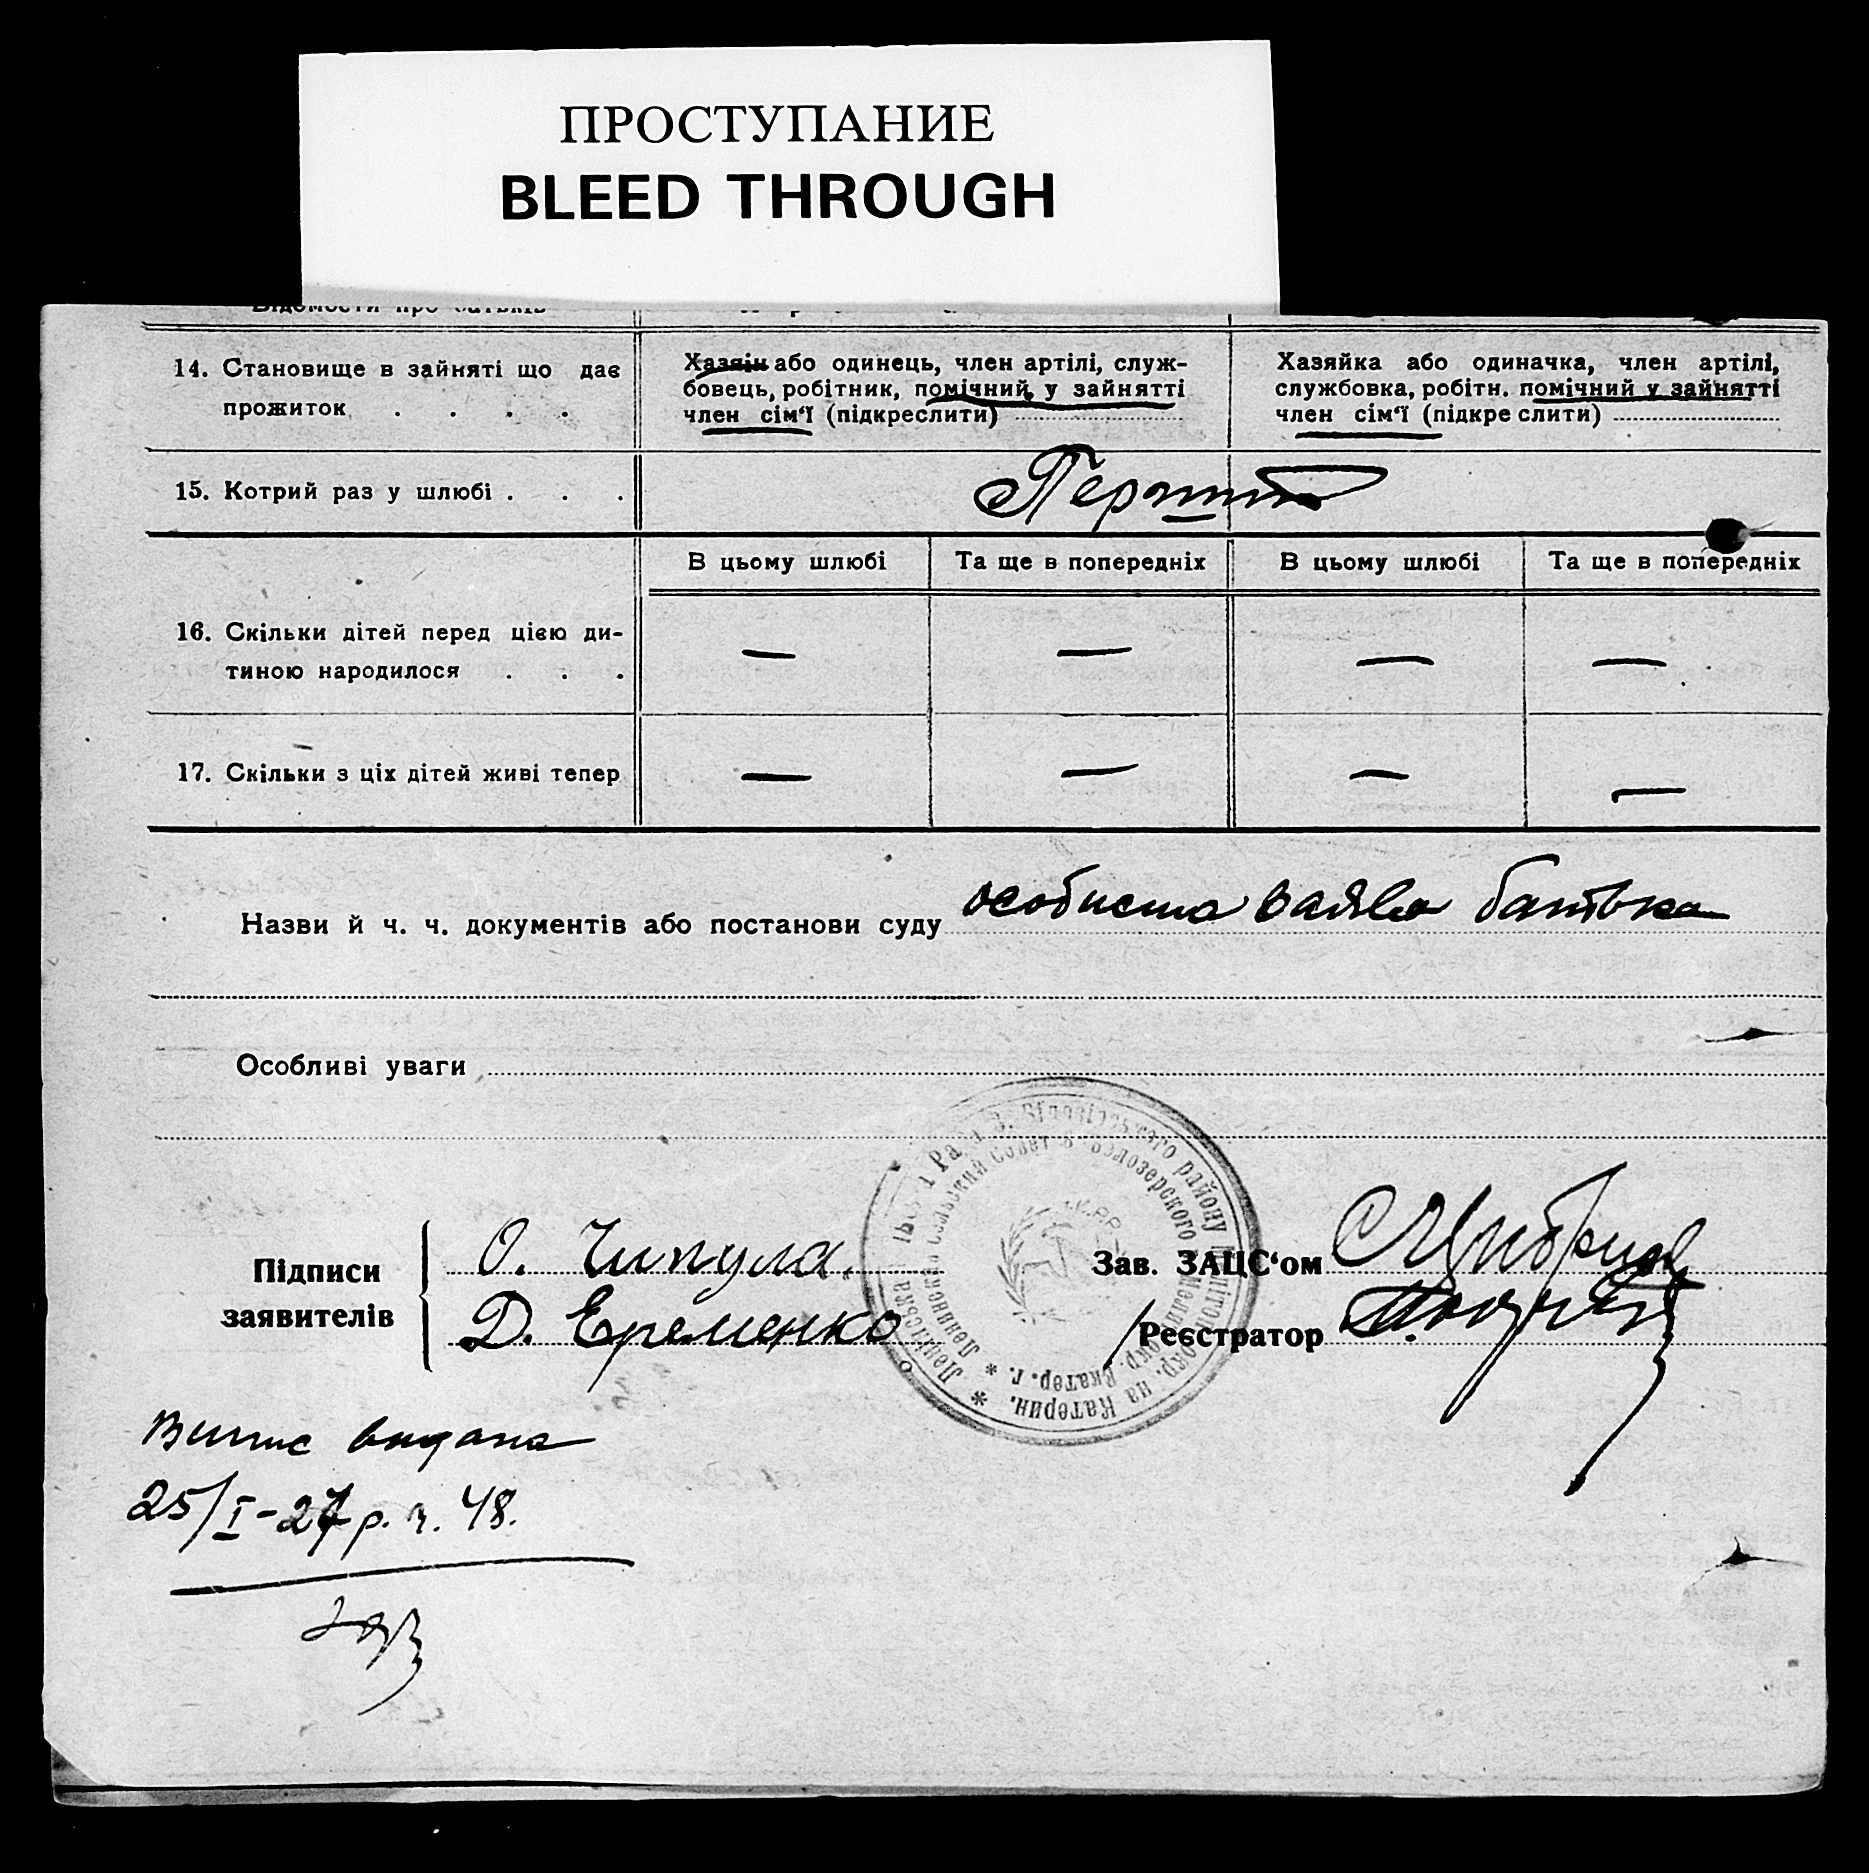 ПРОСТУПАНИЕ
BLEED THROUGH
Відомости про батьків
14. Становище в зайняті що дає прожиток . . . .
Хазяін або одинець, член артілі, служ-
бовець, робітник, помічний у зайнятті
член сім‘ї (підкреслити)
Хазяйка або одиначка, член артілі,
службовка, робітн. помічний у зайнятті
член сім‘ї (підкреслити)
15. Котрий раз у шлюбі . . .
Перший
В цьому шлюбі Та ще в попередніх В цьому шлюбі Та ще в попередніх
16. Скільки дітей перед цією ди-
тиною народилося . . .
— — — —
17. Скільки з ціх дітей живі тепер
— — — —
Назви й ч. ч. документів або постанови суду особиста заява батька
Особливі уваги
Підписи
заявителів
О. Чипула.
Д. Еременко
Зав. ЗАЦС‘ом
Реєстратор
Випис видана
25/I-27 р. ч. 48.